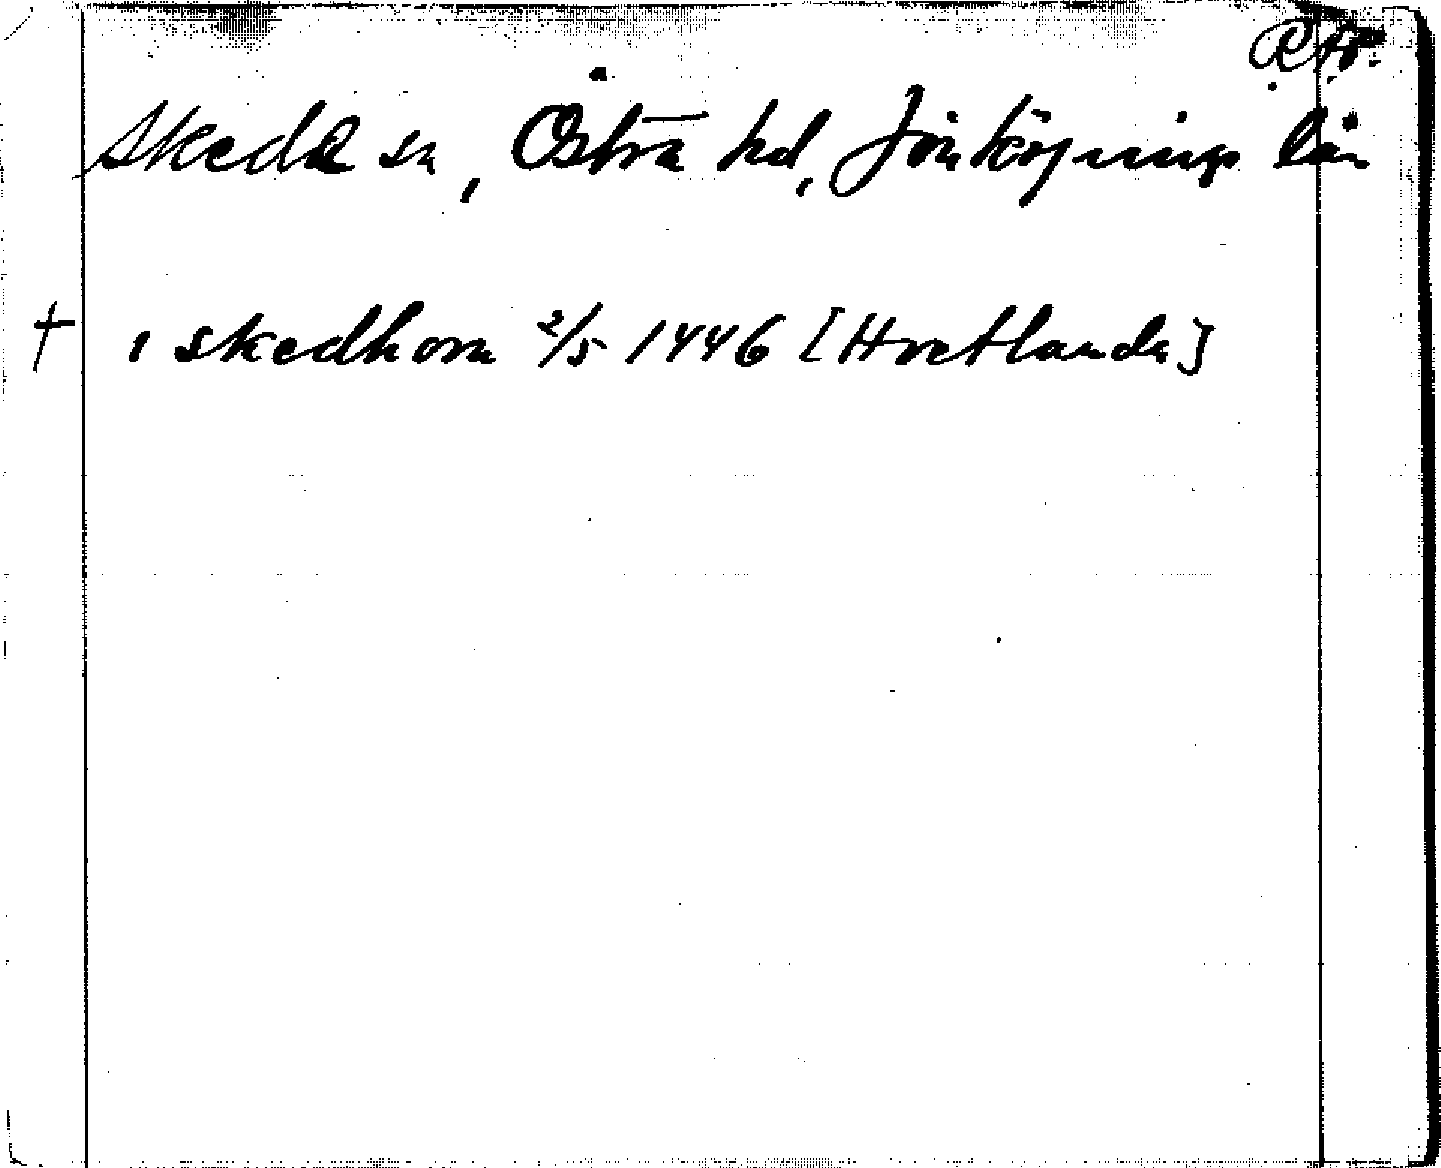 Skeda sn, Östra hd, Jönköpings län
† i skedhom 2/5 1446 [Hvetlanda]